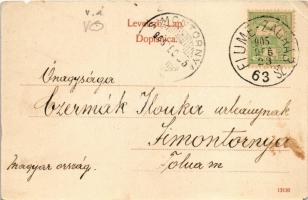 v.á
Levelező-Lap.
Dopisnica.
FIUME-ZÁGRÁB
905
63 SZ
Őnagysága
Czermák Ilonka urhölgynek
Simontornya
Tolna m
Magyar ország.
13130